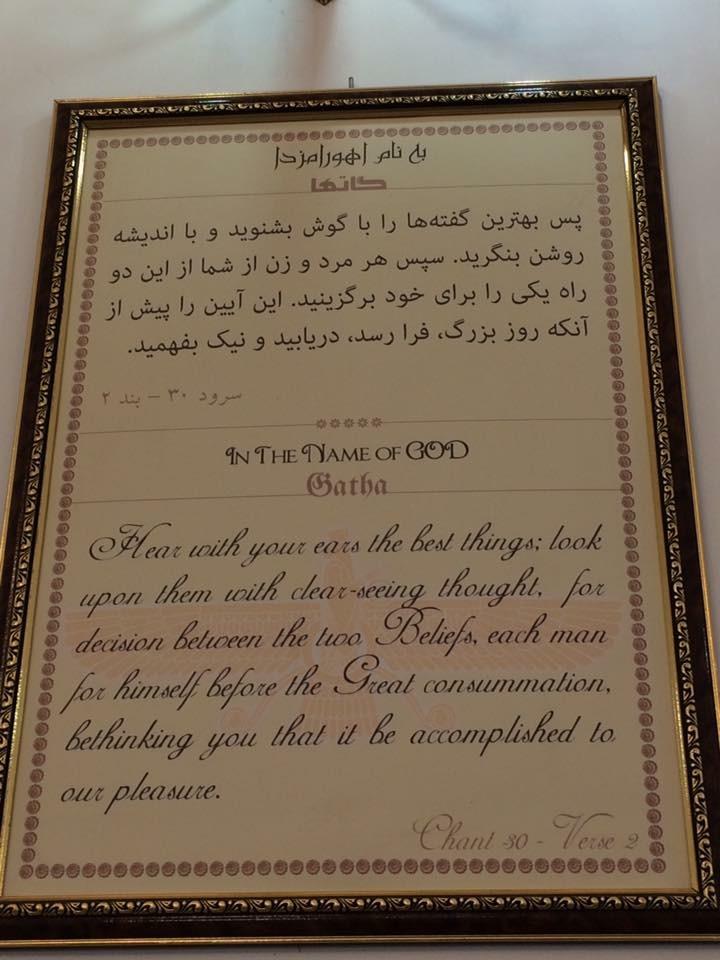 به نام اهورامزدا
گاتها
پس بهترین گفته‌ها را با گوش بشنوید و با اندیشه
روشن بنگرید. سپس هر مرد و زن از شما از این دو
راه یکی را برای خود برگزینید. این آیین را پیش از
آنکه روز بزرگ، فرا رسد، دریابید و نیک بفهمید.
سرود ۳۰ – بند ۲
IN THE NAME OF GOD
Gatha
Hear with your ears the best things; look
upon them with clear-seeing thought, for
decision between the two Beliefs, each man
for himself before the Great consummation,
bethinking you that it be accomplished to
our pleasure.
Chant 30 - Verse 2